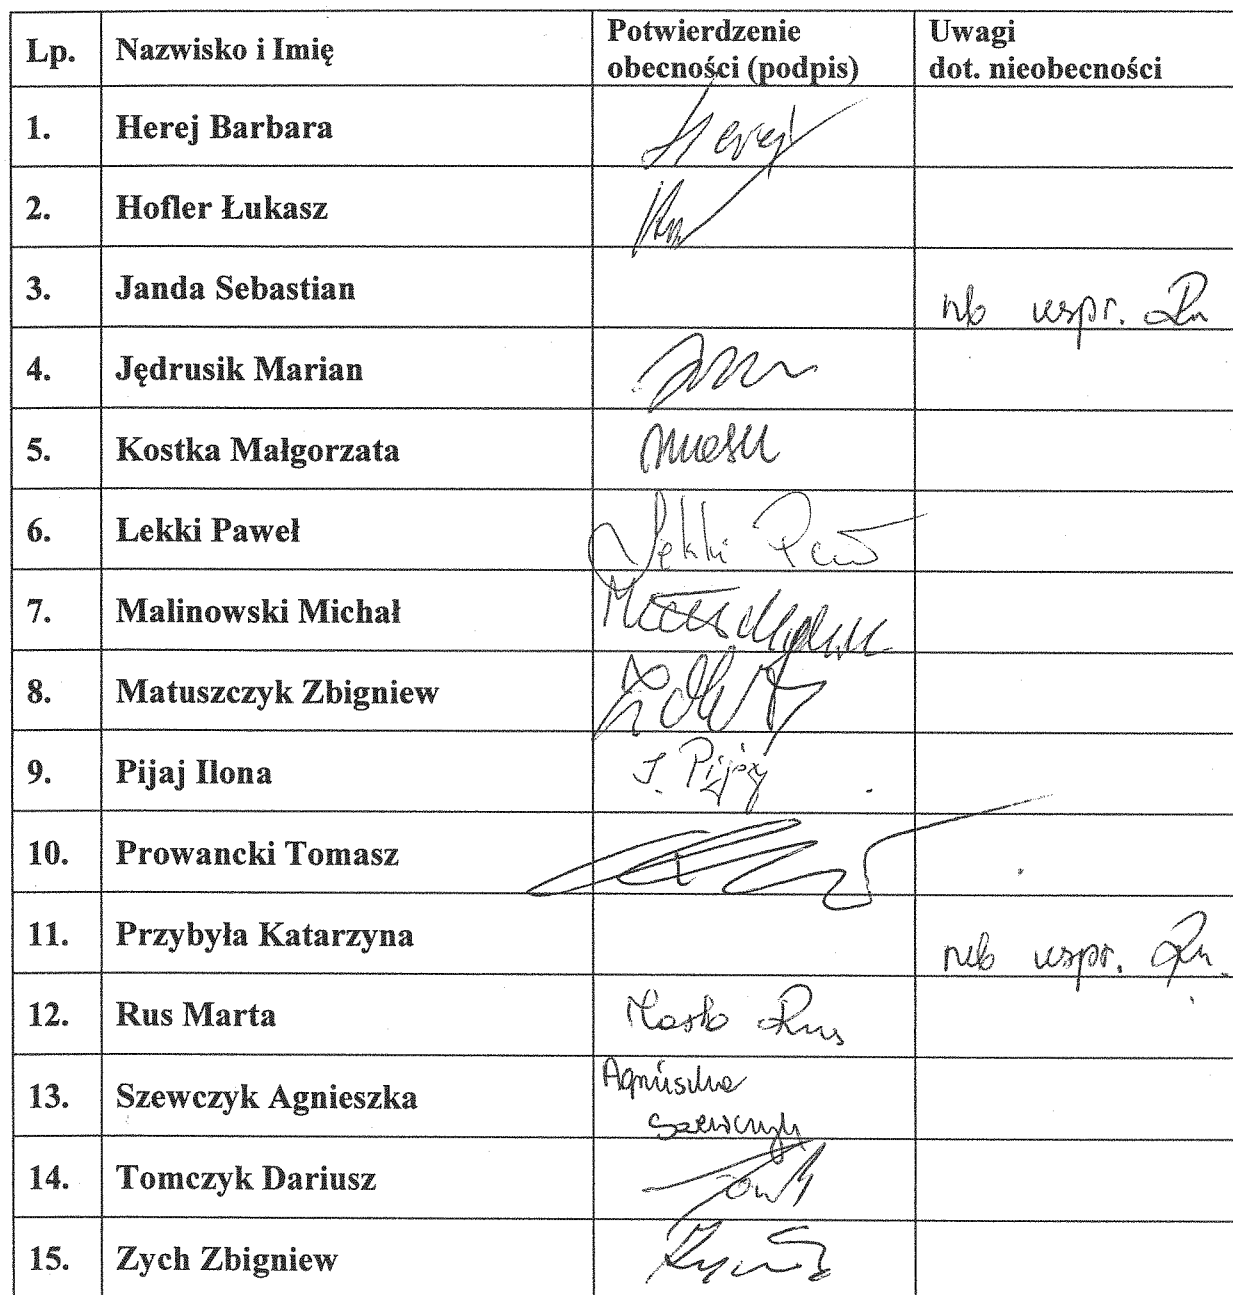 Lp. Nazwisko i Imię Potwierdzenie obecności (podpis) Uwagi dot. nieobecności
1. Herej Barbara Herej
2. Hofler Łukasz
3. Janda Sebastian nb uspr.
4. Jędrusik Marian
5. Kostka Małgorzata
6. Lekki Paweł Lekki
7. Malinowski Michał
8. Matuszczyk Zbigniew
9. Pijaj Ilona I. Pijaj
10. Prowancki Tomasz
11. Przybyła Katarzyna nb uspr.
12. Rus Marta Marta Rus
13. Szewczyk Agnieszka Agnieszka
Szewczyk
14. Tomczyk Dariusz
15. Zych Zbigniew